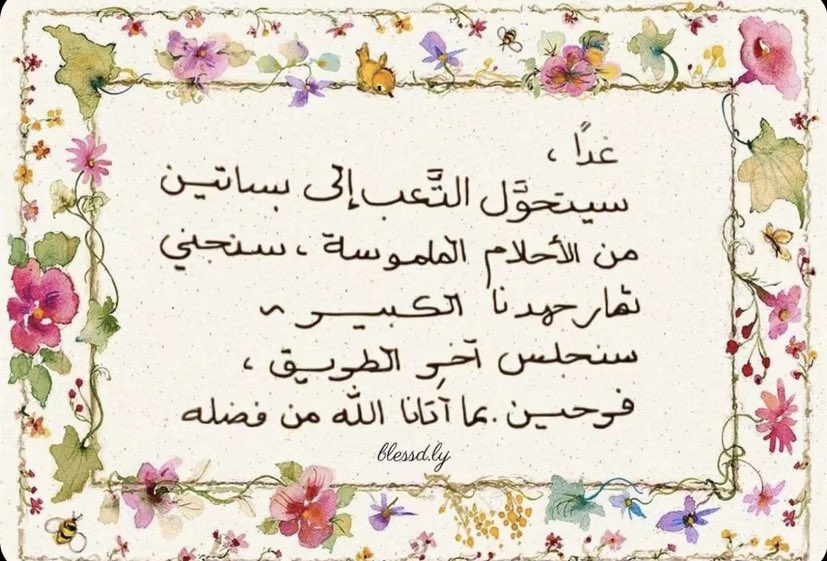 غدًا ،
سيتحوَّل التَّعب إلى بساتين
من الأحلام الملموسة ، سنجني
ثمار جهدنا الكبيـــر ~
سنجلس آخرِ الطريق ،
فرحين بما آتانا الله من فضله
blessd.ly